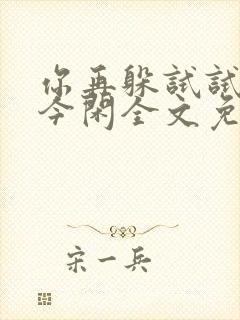 你再躲试试
今闲全文免
宋一兵